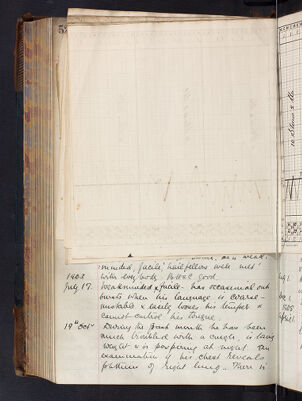 minded, facile, hail fellow well met
with everybody. B.H. & C good.
1903
July 17. Weakminded & facile - has occasional out
bursts when his language is coarse -
unstable & easily loses his temper &
cannot control his tongue.
19th Oct During the past month he has been
much troubled with a cough, is losing
weight & is perspiring at night. An
examination of his chest reveals
of right lung. There is